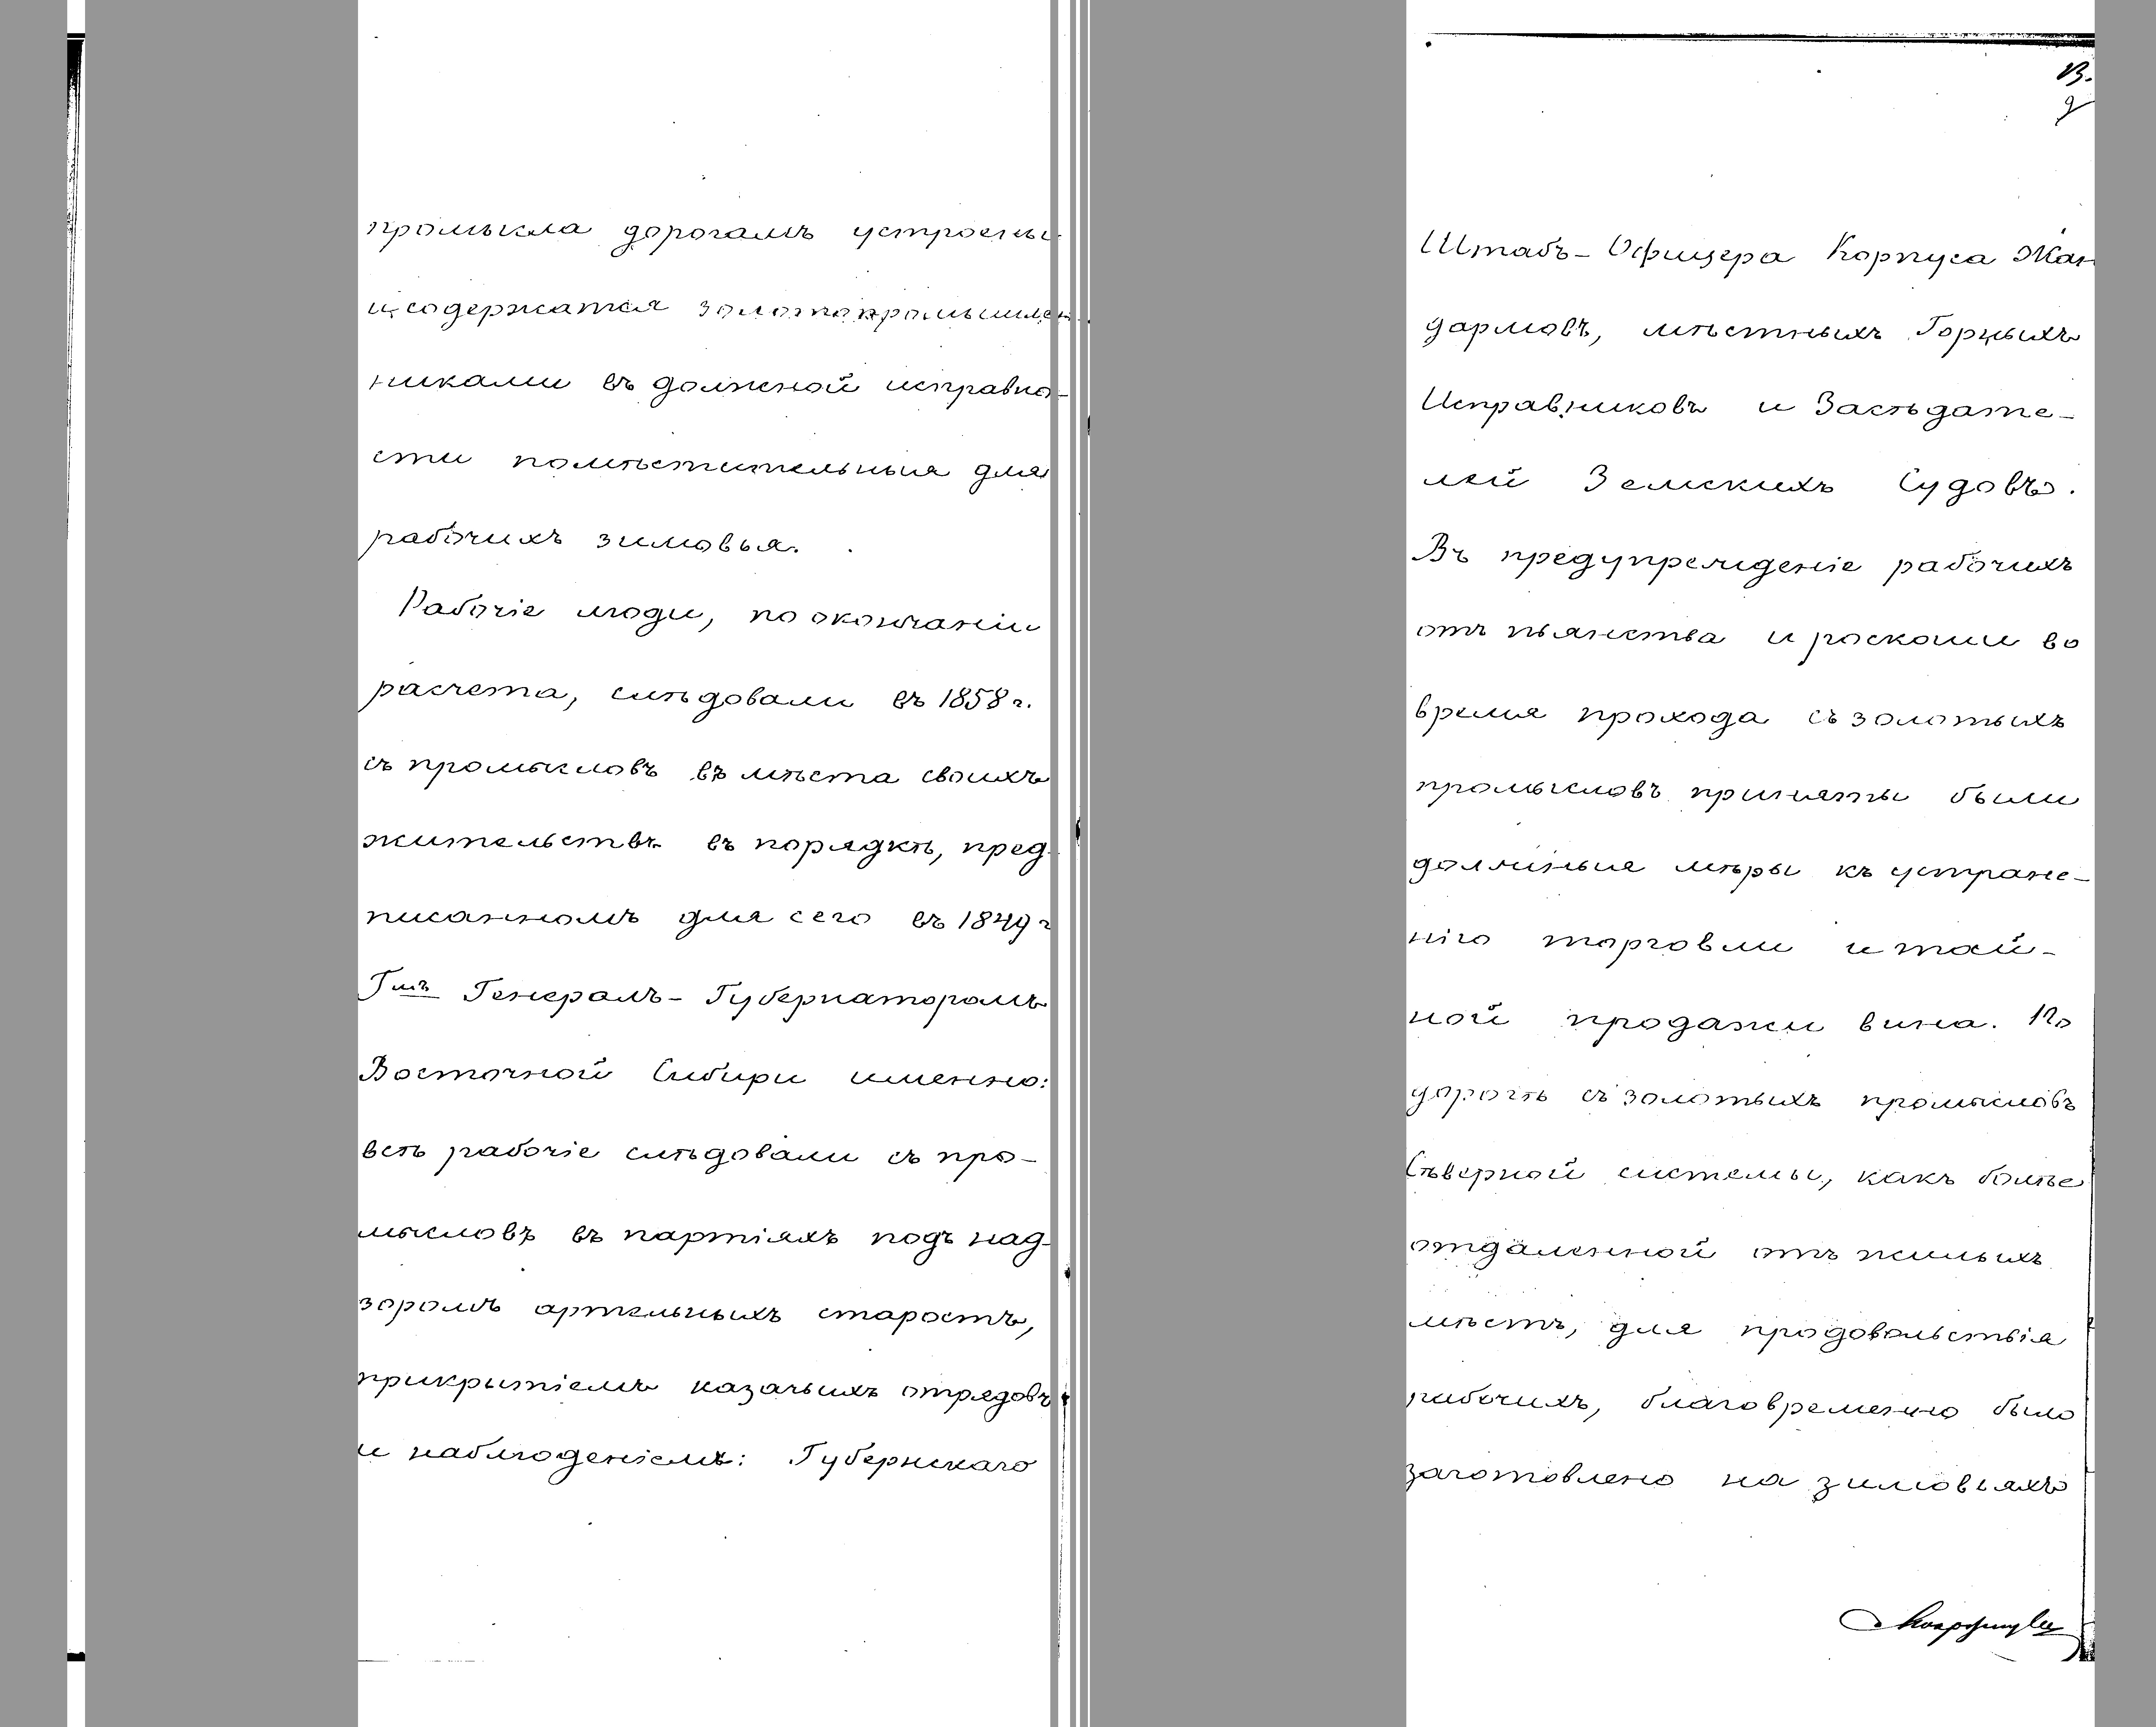 промысла дорогамъ устроены
и содержатся золотопромышлен-
никами въ должной исправно-
сти помѣстительныя для
рабочихъ зимовья.
Рабочіе люди, по окончаніи
расчета, слѣдовали въ 1858 г.
съ промысловъ въ мѣста своихъ
жительствъ въ порядкѣ, пред-
писанномъ для сего въ 1849 г
Гмъ Генералъ-Губернаторомъ
Восточной Сибири именно:
всѣ рабочіе слѣдовали съ про-
мысловъ въ партіяхъ подъ над-
зоромъ артельныхъ старостъ,
прикрытіемъ казачьихъ отрядовъ
и наблюденіемъ: Губернскаго
13.
Штабъ-Офицера Корпуса Жан
дармовъ, мѣстныхъ Горныхъ
Исправниковъ и Засѣдате-
лей Земскихъ Судовъ.
Въ предупрежденіе рабочихъ
отъ пьянства и роскоши во
время прохода съ золотыхъ
промысловъ приняты были
должныя мѣры къ устране-
нію торговли и тай-
ной продажи вина. По
дорогѣ съ золотыхъ промысловъ
Сѣверной системы, какъ болѣе
отдаленной отъ жилыхъ
мѣстъ, для продовольствія
рабочихъ, благовременно было
заготовлено на зимовьяхъ